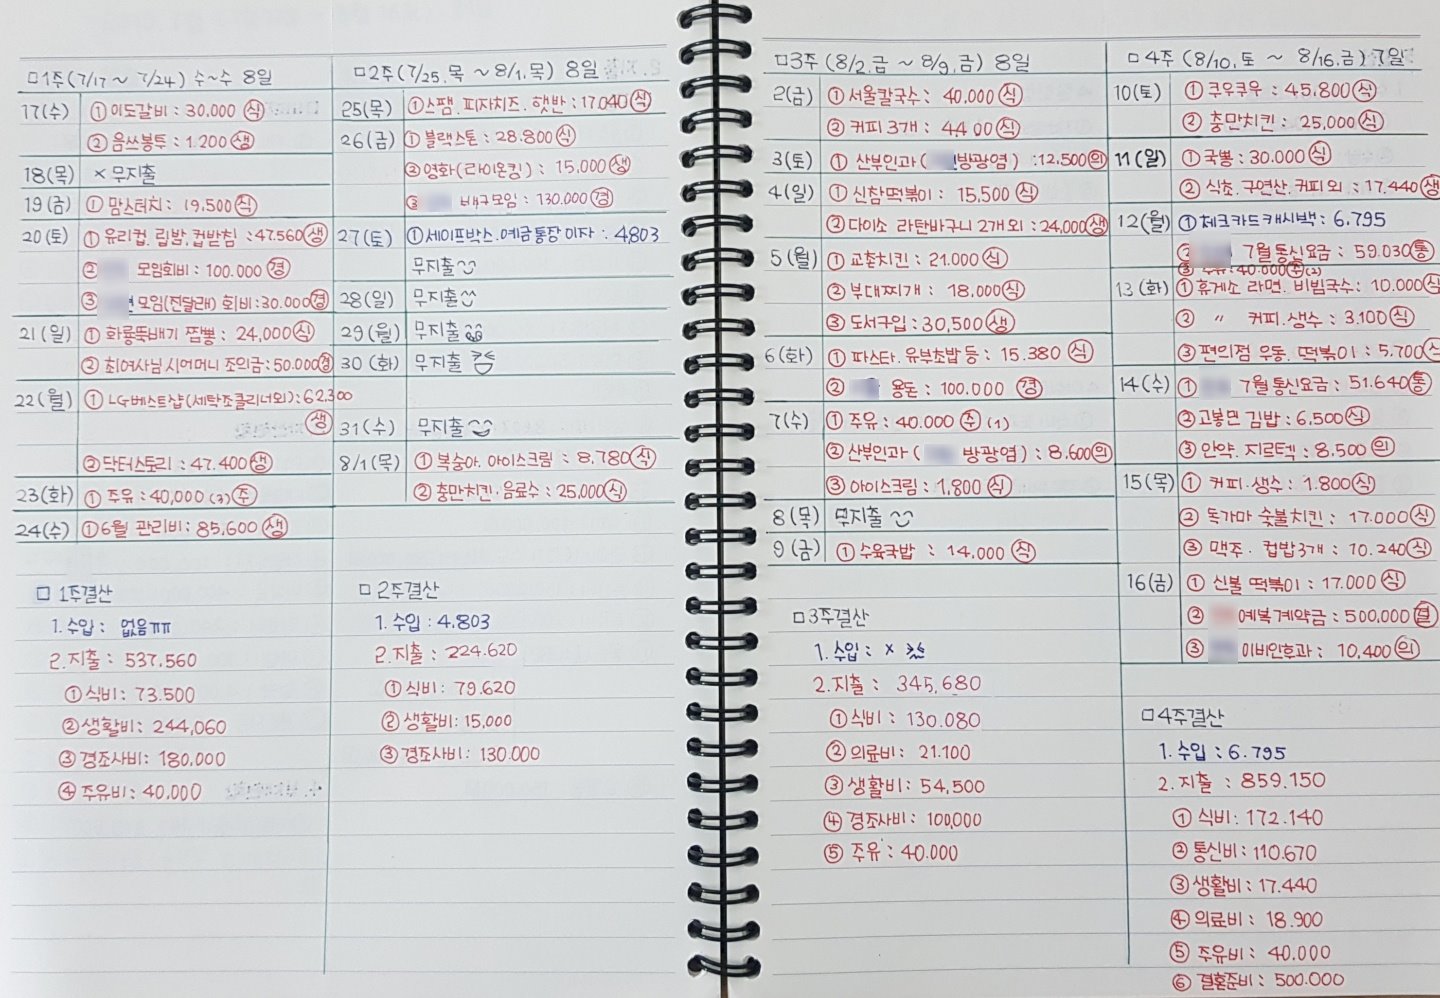 □1주(7/17 ~ 7/24) 수~수 8일
17(수) ① 이도갈비 : 30,000 (식)
② 음쓰봉투 : 1.200 (생)
18(목) × 무지출
19(금) ① 맘스터치 : 19,500 (식)
20(토) ① 유리컵, 립밤, 컵받침 : 47.560 (생)
② 모임회비 : 100.000 (경)
③ 모임(진달래) 회비 : 30.000 (경)
21(일) ① 화룡뚝배기 짬뽕 : 24,000 (식)
② 최여사님 시어머니 조의금 : 50.000 (경)
22(월) ① LG베스트샵(세탁조클리너외) : 62,300
(생)
② 닥터스토리 : 47.400 (생)
23(화) ① 주유 : 40,000 (3) (주)
24(수) ① 6월 관리비 : 85,600 (생)
□ 1주결산
1. 수입 : 없음ㅠㅠ
2. 지출 : 537,560
① 식비 : 73.500
② 생활비 : 244,060
③ 경조사비 : 180,000
④ 주유비 : 40,000
□2주(7/25.목 ~ 8/1.목) 8일
25(목) ① 스팸. 피자치즈. 햇반 : 17.040 (식)
26(금) ① 블랙스톤 : 28.800 (식)
② 영화(라이온킹) : 15,000 (생)
③ 배구모임 : 130.000 (경)
27(토) ① 세이프박스. 예금통장 이자 : 4,803
무지출
28(일) 무지출
29(월) 무지출
30(화) 무지출
31(수) 무지출
8/1(목) ① 복숭아. 아이스크림 : 8,780 (식)
② 충만치킨. 음료수 : 25,000 (식)
□ 2주결산
1. 수입 : 4.803
2. 지출 : 224.620
① 식비 : 79.620
② 생활비 : 15,000
③ 경조사비 : 130.000
□3주(8/2.금 ~ 8/9.금) 8일
2(금) ① 서울칼국수 : 40,000 (식)
② 커피 3개 : 4400 (식)
3(토) ① 산부인과( 방광염) : 12.500 (의)
4(일) ① 신참떡볶이 : 15,500 (식)
② 다이소 라탄바구니 2개외 : 24,000 (생)
5(월) ① 교촌치킨 : 21.000 (식)
② 부대찌개 : 18,000 (식)
③ 도서구입 : 30,500 (생)
6(화) ① 파스타. 유부초밥 등 : 15.380 (식)
② 용돈 : 100.000 (경)
7(수) ① 주유 : 40.000 (주) (1)
② 산부인과( 방광염) : 8,600 (의)
③ 아이스크림 : 1,800 (식)
8(목) 무지출
9(금) ① 수육국밥 : 14,000 (식)
□3주결산
1. 수입 : ×
2. 지출 : 345,680
① 식비 : 130.080
② 의료비 : 21.100
③ 생활비 : 54,500
④ 경조사비 : 100,000
⑤ 주유 : 40.000
□4주(8/10.토 ~ 8/16.금) 7일
10(토) ① 쿠우쿠우 : 45.800 (식)
② 충만치킨 : 25,000 (식)
11(일) ① 국뽕 : 30.000 (식)
② 식초. 구연산. 커피 외 : 17.440 (생)
12(월) ① 체크카드캐시백 : 6.795
② 7월 통신요금 : 59.030 (통)
③ 주유 : 40.000 (주) (2)
13(화) ① 휴게소 라면. 비빔국수 : 10.000 (식)
② 〃 커피. 생수 : 3.100 (식)
③ 편의점 우동. 떡볶이 : 5.700 (식)
14(수) ① 7월 통신요금 : 51.640 (통)
② 고봉민 김밥 : 6,500 (식)
③ 안약. 지르텍 : 8,500 (의)
15(목) ① 커피. 생수 : 1.800 (식)
② 독가마 숯불치킨 : 17.000 (식)
③ 맥주. 컵밥3개 : 10.240 (식)
16(금) ① 신불 떡볶이 : 17.000 (식)
② 예복계약금 : 500,000 (결)
③ 이비인후과 : 10,400 (의)
□4주결산
1. 수입 : 6.795
2. 지출 : 859.150
① 식비 : 172.140
② 통신비 : 110.670
③ 생활비 : 17.440
④ 의료비 : 18.900
⑤ 주유비 : 40.000
⑥ 결혼준비 : 500.000